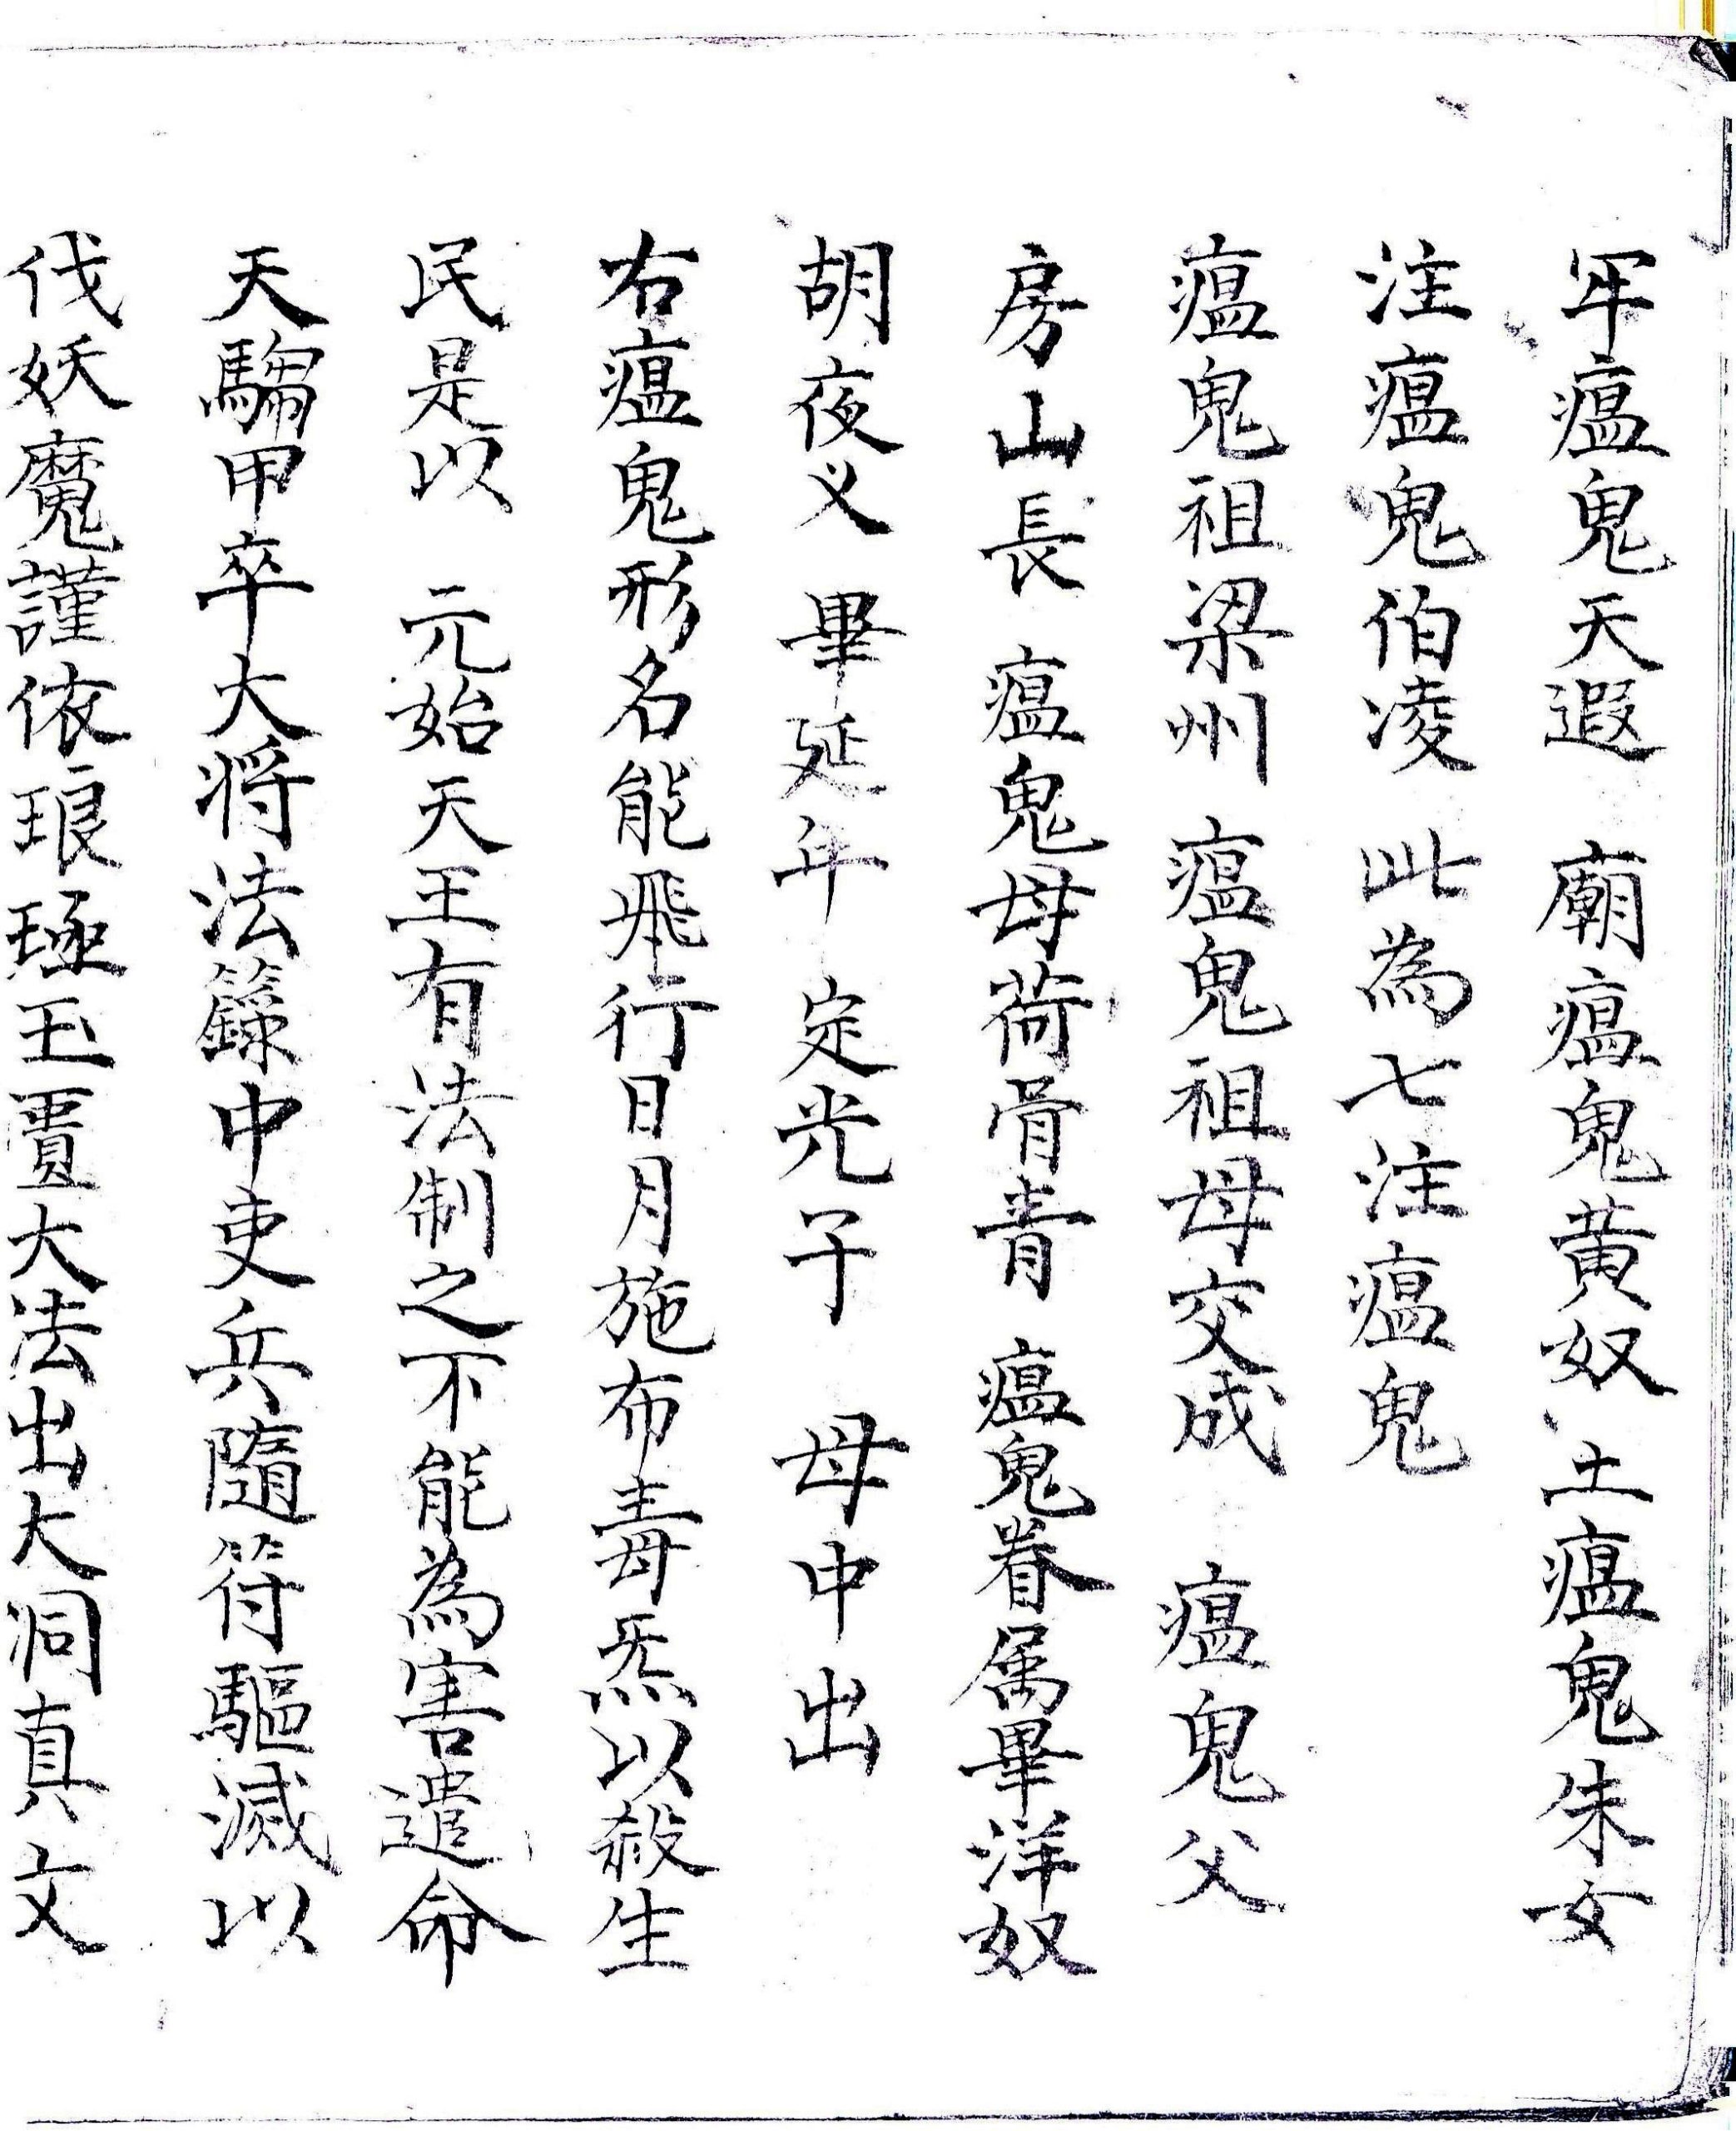 牢瘟鬼天遐　廟瘟鬼黄奴　土瘟鬼朱女
注瘟鬼伯凌　此為七注瘟鬼
瘟鬼祖梁州　瘟鬼祖母交成　瘟鬼父
房山長　瘟鬼母荷骨青　瘟鬼眷属畢洋奴
胡夜义　畢延年　定光子　母中出
右瘟鬼形名能飛行日月施布毒炁以殺生
民是以　元始天王有法制之不能為害遣命
天騶甲卒大将法籙中吏兵隨符驅滅以
伐妖魔謹依琅玉大法出大洞真文